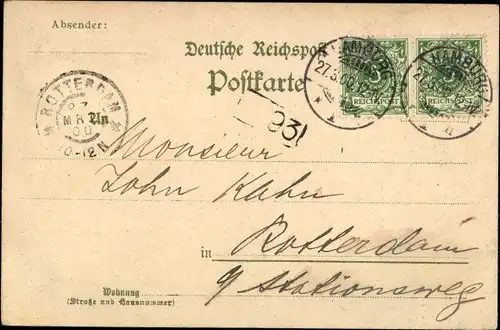 Absender:
Deutsche Reichspost
Postkarte
HAMBURG
27.3.00.12
REICHSPOST
HAMBURG
REICHSPOST
ROTTERDAM
MRT
00
10-12N
An
931
Monsieur
John Kahn
in Rotterdam
9 Stationsweg
Wohnung
(Straße und Hausnummer)